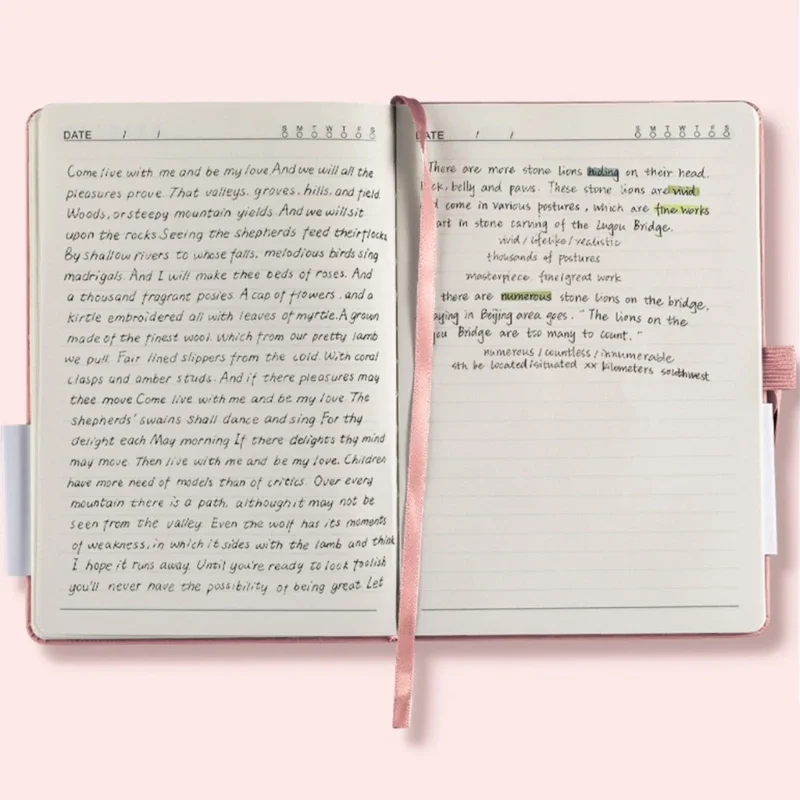 DATE / / S M T W T F S
Come live with me and be my love And we will all the
pleasures prove That valleys, groves, hills, and field
Woods, or steepy mountain yields And we will sit
upon the rocks Seeing the shepherds feed their flocks
By shallow rivers to whose falls, melodious birds sing
madrigals. And I will make thee beds of roses. And
a thousand fragrant posies. A cap of flowers, and a
kirtle embroidered all with leaves of myrtle. A gown
made of the finest wool. Which from our pretty lamb
we pull. Fair lined slippers from the cold. With coral
clasps and amber studs. And if there pleasures may
thee move Come live with me and be my love. The
shepherds' swains Shall dance and sing For thy
delight each May morning If there delights thy mind
may move. Then live with me and be my love. Children
have more need of models than of critics. Over every
mountain there is a path, although it may not be
seen from the valley. Even the wolf has its moments
of weakness, in which it sides with the lamb and think
I hope it runs away. Until you're ready to look foolish
you'll never have the possibility of being great Let
DATE / / S M T W T F S
There are more stone lions hiding on their head.
belly and paws. These stone lions are vivid
come in various postures, which are fine works
art in stone carving of the Lugou Bridge.
vivid / lifelike / realistic
thousands of postures
masterpiece. fine/great work
there are numerous stone lions on the bridge.
aying in Beijing area goes. "The lions on the
ou Bridge are too many to count."
numerous / countless / innumerable
sth be located/situated xx kilometers southwest